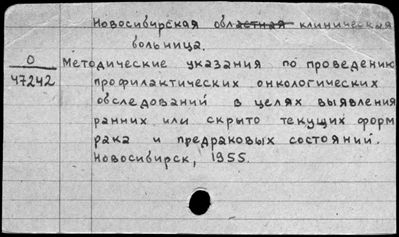 Новосибирская областная клиническая
больница.
О
47242
Методические указания по проведению
профилактических онкологических
обследований в целях выявления
ранних или скрыто текущих форм
рака и предраковых состояний.
Новосибирск, 1955.